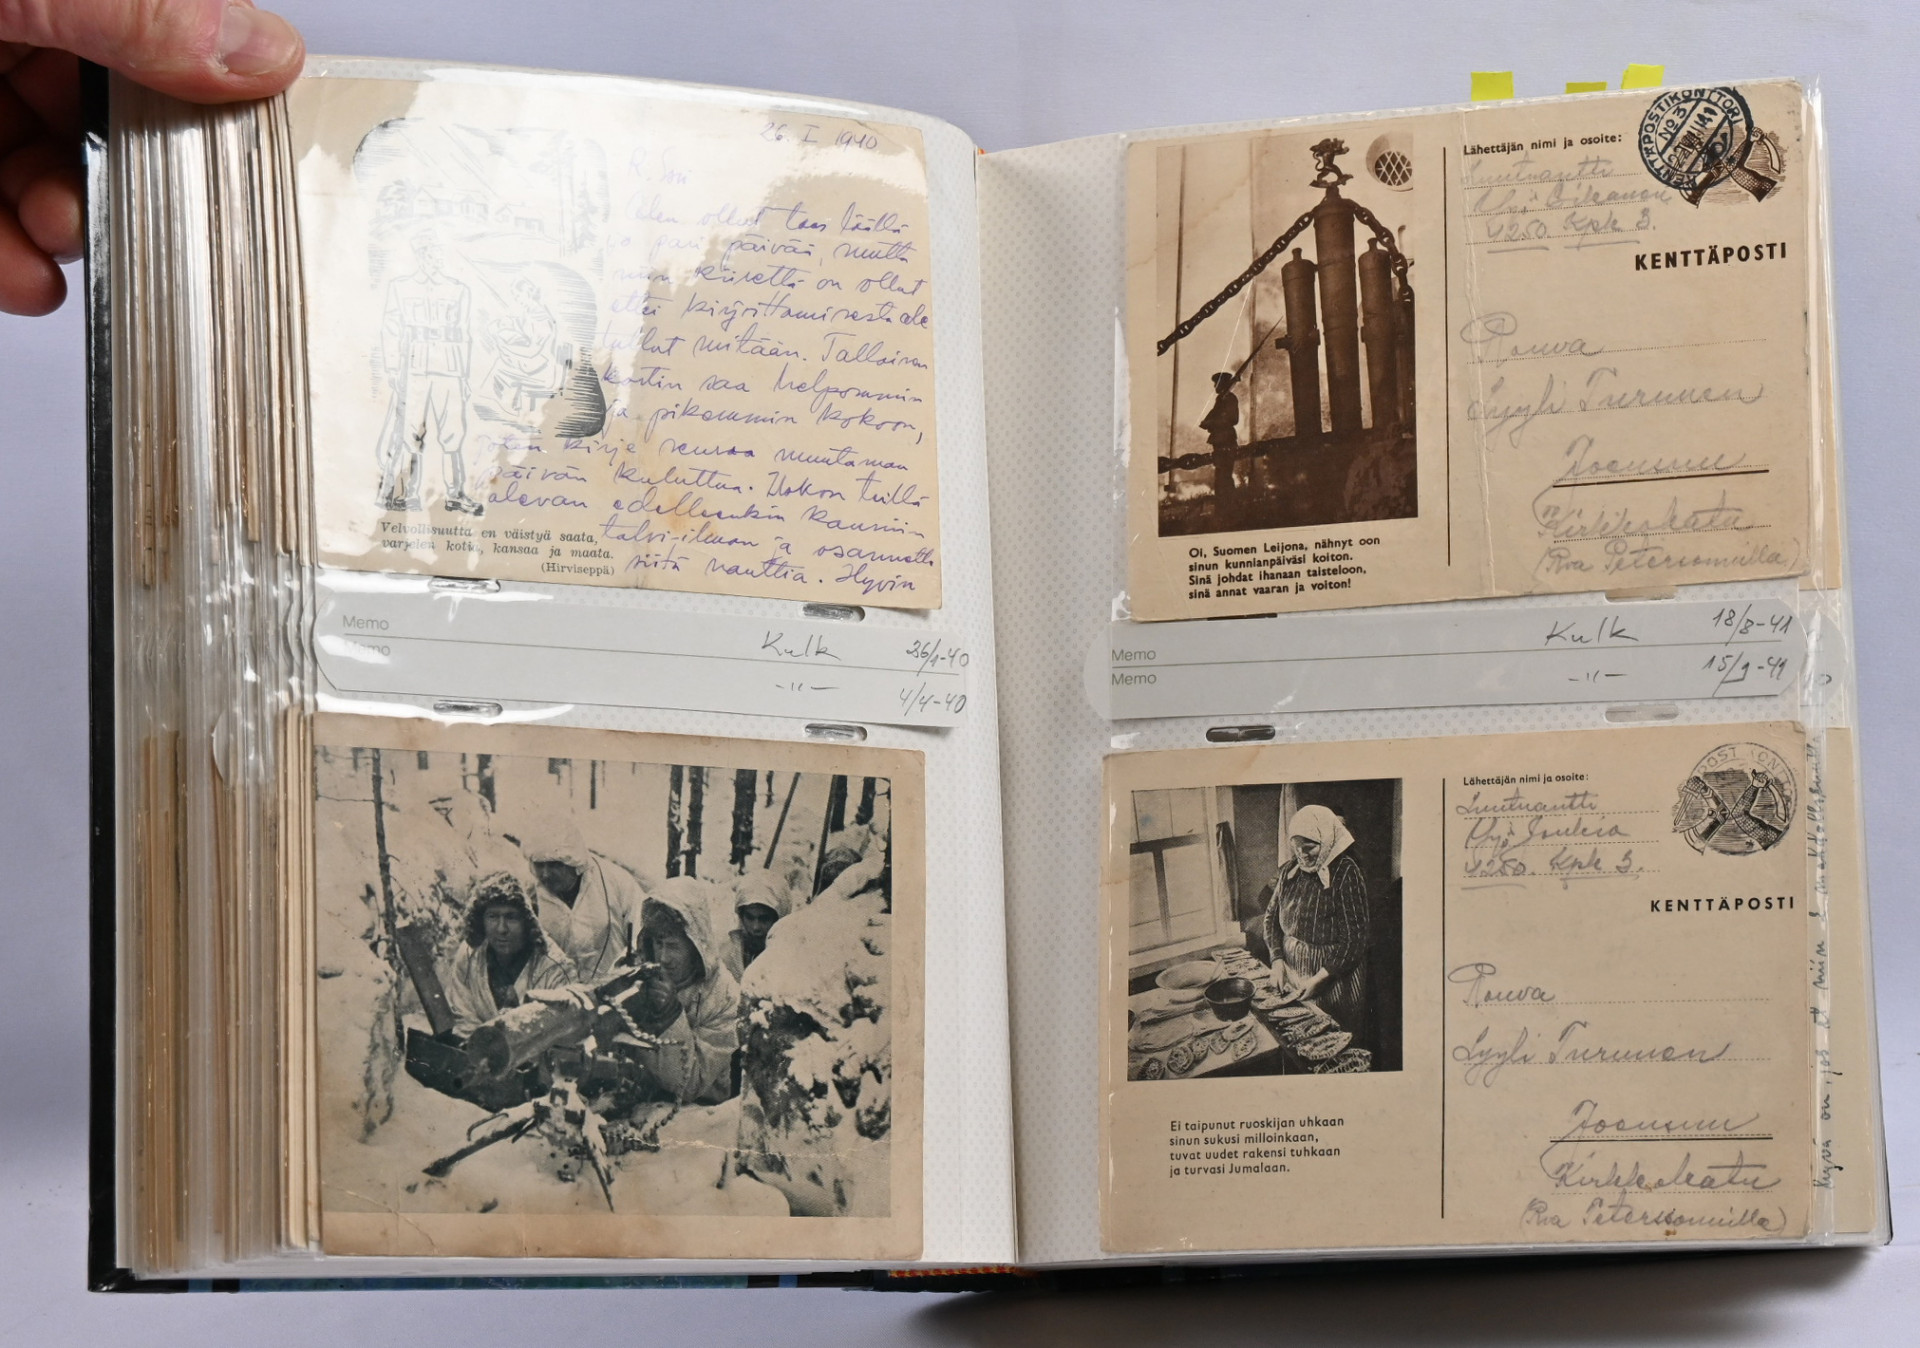 26. I 1940
R. Siri
Olen ollut taas täällä
jo pari päivää, mutta
niin kiirettä on ollut
ettei kirjoittamisesta ole
tullut mitään. Tallaisen
kortin saa helpommin
ja pikemmin kokoon,
joten kirje seuraa muutaman
päivän kuluttua. Uskon teillä
olevan edelleenkin kauniin
talvi-ilman ja osannette
siitä nauttia. Hyvin
Velvollisuutta en väistyä saata,
varjelen kotia, kansaa ja maata.
(Hirviseppä)
Memo
Memo
Kulk 26/1-40
-"- 4/4-40
Lähettäjän nimi ja osoite:
KENTTÄPOSTIKONTTORI
No 3
Luutnantti
4250. Kpk 3.
KENTTÄPOSTI
Rouva
Lyyli Turunen
Joensuu
Kirkkokatu
(Rva Petersonnilla)
Oi, Suomen Leijona, nähnyt oon
sinun kunnianpäiväsi koiton.
Sinä johdat ihanaan taisteloon,
sinä annat vaaran ja voiton!
Memo
Memo
Kulk 18/8-41
-"- 15/9-41
Lähettäjän nimi ja osoite:
Luutnantti
4250. Kpk 3.
KENTTÄPOSTI
Rouva
Lyyli Turunen
Joensuu
Kirkkokatu
(Rva Petersonnilla)
Ei taipunut ruoskijan uhkaan
sinun sukusi milloinkaan,
tuvat uudet rakensi tuhkaan
ja turvasi Jumalaan.
Hyvä on, jos et niin